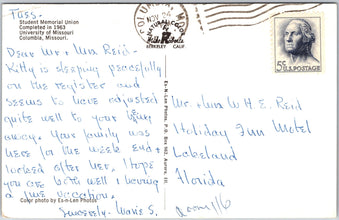 Tues.
Student Memorial Union
Completed in 1963
University of Missouri
Columbia, Missouri.
Dear Mr + Mrs Reid-
Kitty is sleeping peacefully
on the register and
seems to have adjusted
quite well to your being
away. Your family was
here for the week end &
looked after her. I hope
you are both well & having
a nice vacation.
Sincerely. Marie S.
Color photo by Es-n-Len Photos
COLUMBIA, MO.
NOV 26
BERKELEY CALIF
Es-N-Len Photos, P.O. Box 142, Aurora, Ill.
5¢ U.S. POSTAGE
Mr. + Mrs W. H. E. Reid
Holiday Inn Motel
Lakeland
Florida
room 116